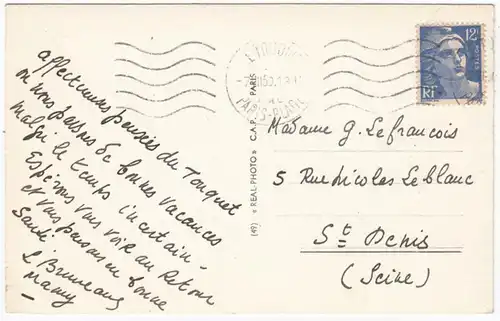 affectueuses pensées du Touquet
où nous passons de bonnes vacances
malgré le temps incertain -
Espérons vous voir au Retour
et vous passons en bonne
Santé.
Mamy
(49) « REAL-PHOTO » C.A.P. PARIS
12F
RF
Madame G. Lefrancois
5 Rue Nicolas Leblanc
St Denis
(Seine)